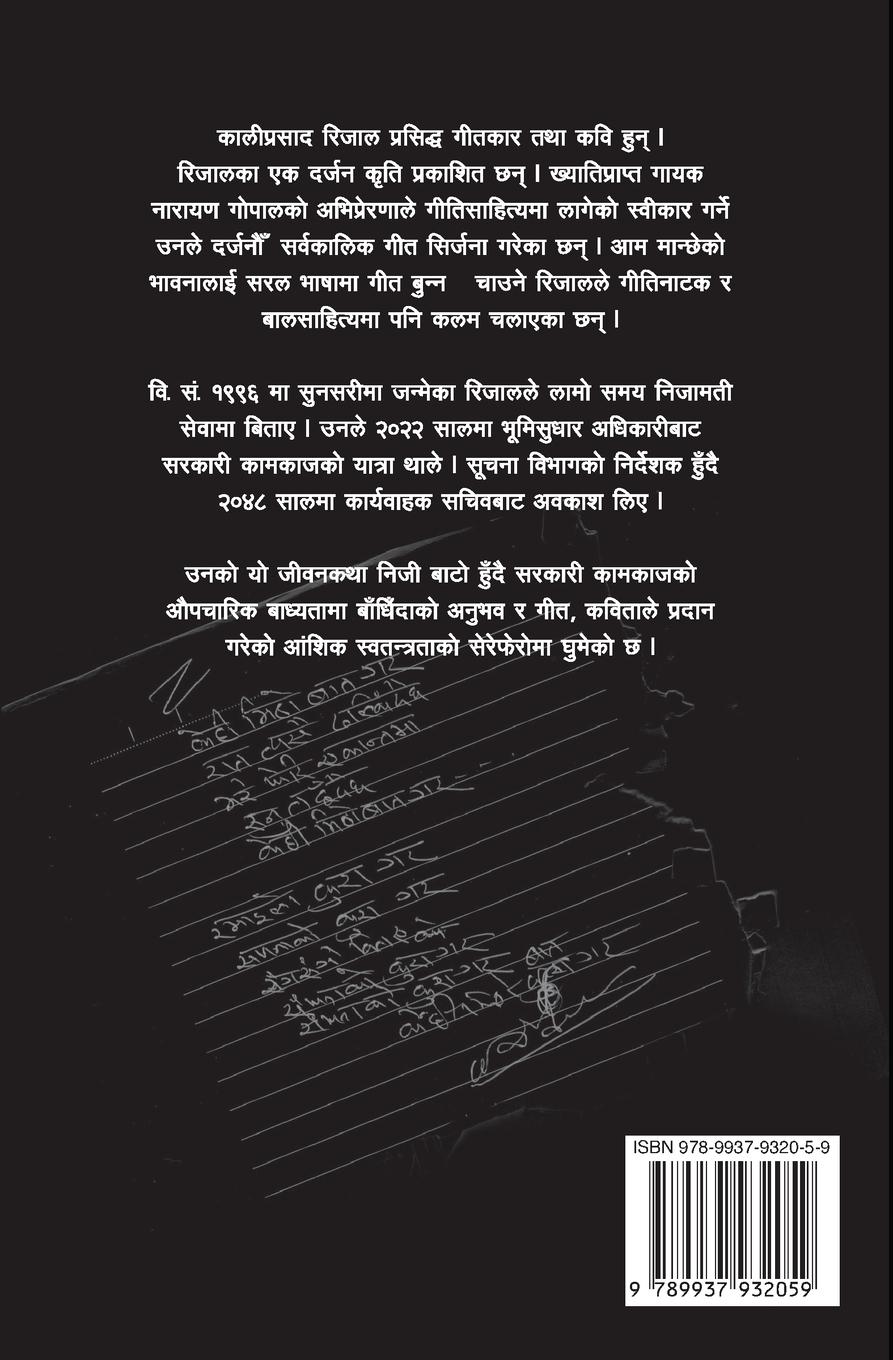 कालीप्रसाद रिजाल प्रसिद्ध गीतकार तथा कवि हुन् ।
रिजालका एक दर्जन कृति प्रकाशित छन् । ख्यातिप्राप्त गायक
नारायण गोपालको अभिप्रेरणाले गीतिसाहित्यमा लागेको स्वीकार गर्ने
उनले दर्जनौँ सर्वकालिक गीत सिर्जना गरेका छन् । आम मान्छेको
भावनालाई सरल भाषामा गीत बुन्न चाउने रिजालले गीतिनाटक र
बालसाहित्यमा पनि कलम चलाएका छन् ।
वि. सं. १९९६ मा सुनसरीमा जन्मेका रिजालले लामो समय निजामती
सेवामा बिताए । उनले २०२२ सालमा भूमिसुधार अधिकारीबाट
सरकारी कामकाजको यात्रा थाले । सूचना विभागको निर्देशक हुँदै
२०४८ सालमा कार्यवाहक सचिवबाट अवकाश लिए ।
उनको यो जीवनकथा निजी बाटो हुँदै सरकारी कामकाजको
औपचारिक बाध्यतामा बाँधिँदाको अनुभव र गीत, कविताले प्रदान
गरेको आंशिक स्वतन्त्रताको सेरेफेरोमा घुमेको छ ।
केही मिठो बात गर
रात
फेरि एकान्तमा
केही मिठो बात गर
रमाइलो कुरा गर
कुरा गर
कुरा गर
कुरा गर
ISBN 978-9937-9320-5-9
9 789937 932059